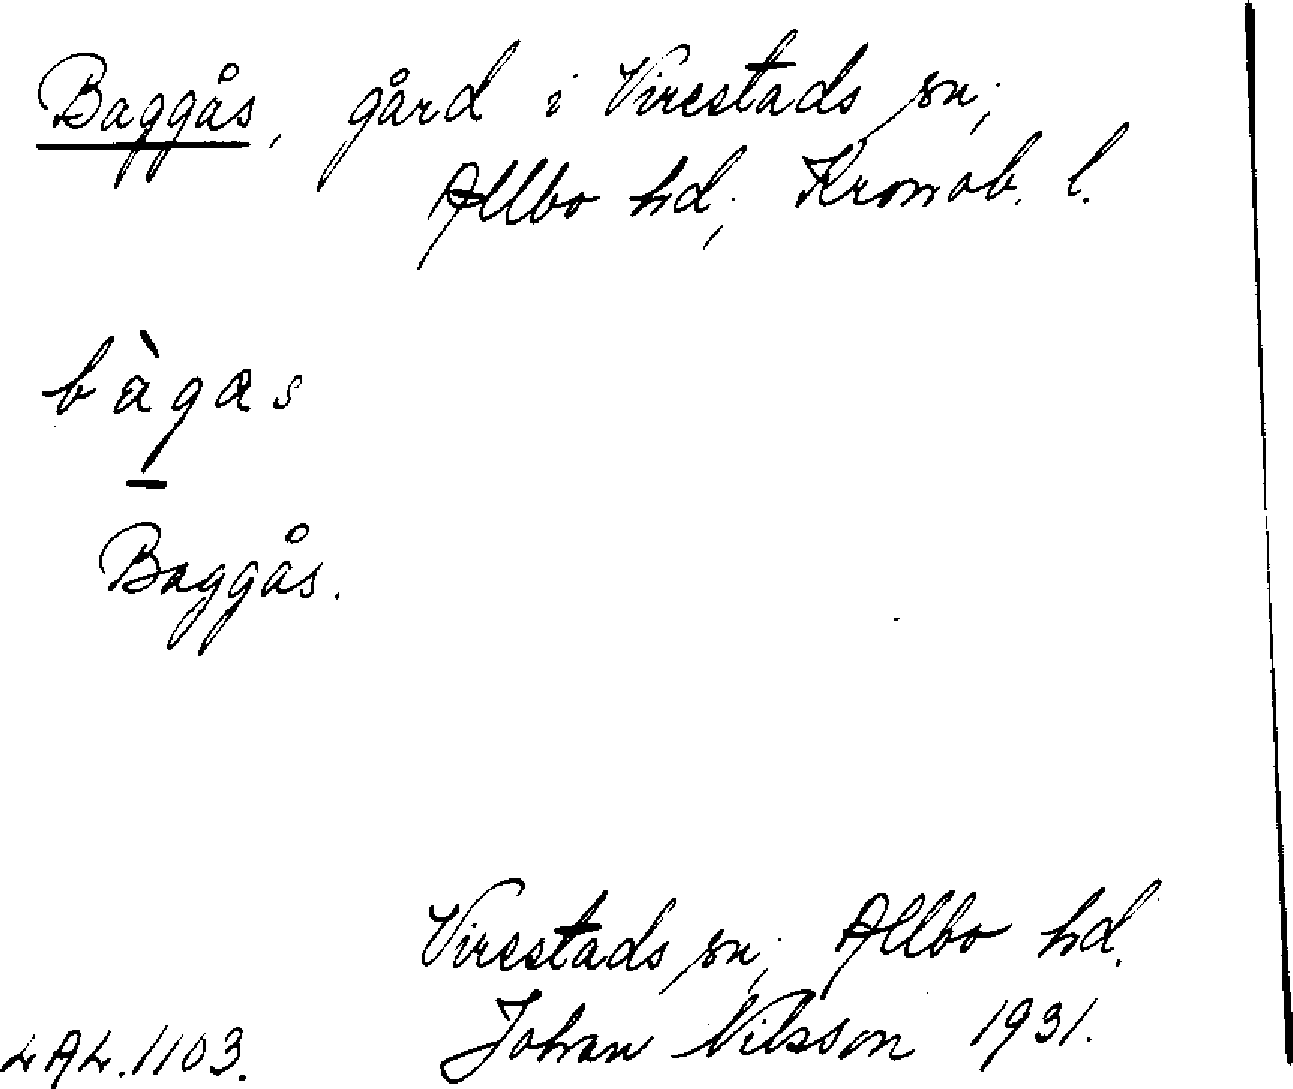 Baggås, gård i Virestads sn;
Allbo hd; Kronob. l.
bàgas
Baggås.
Virestads sn; Allbo hd.
LAL.1103. Johan Nilsson 1931.